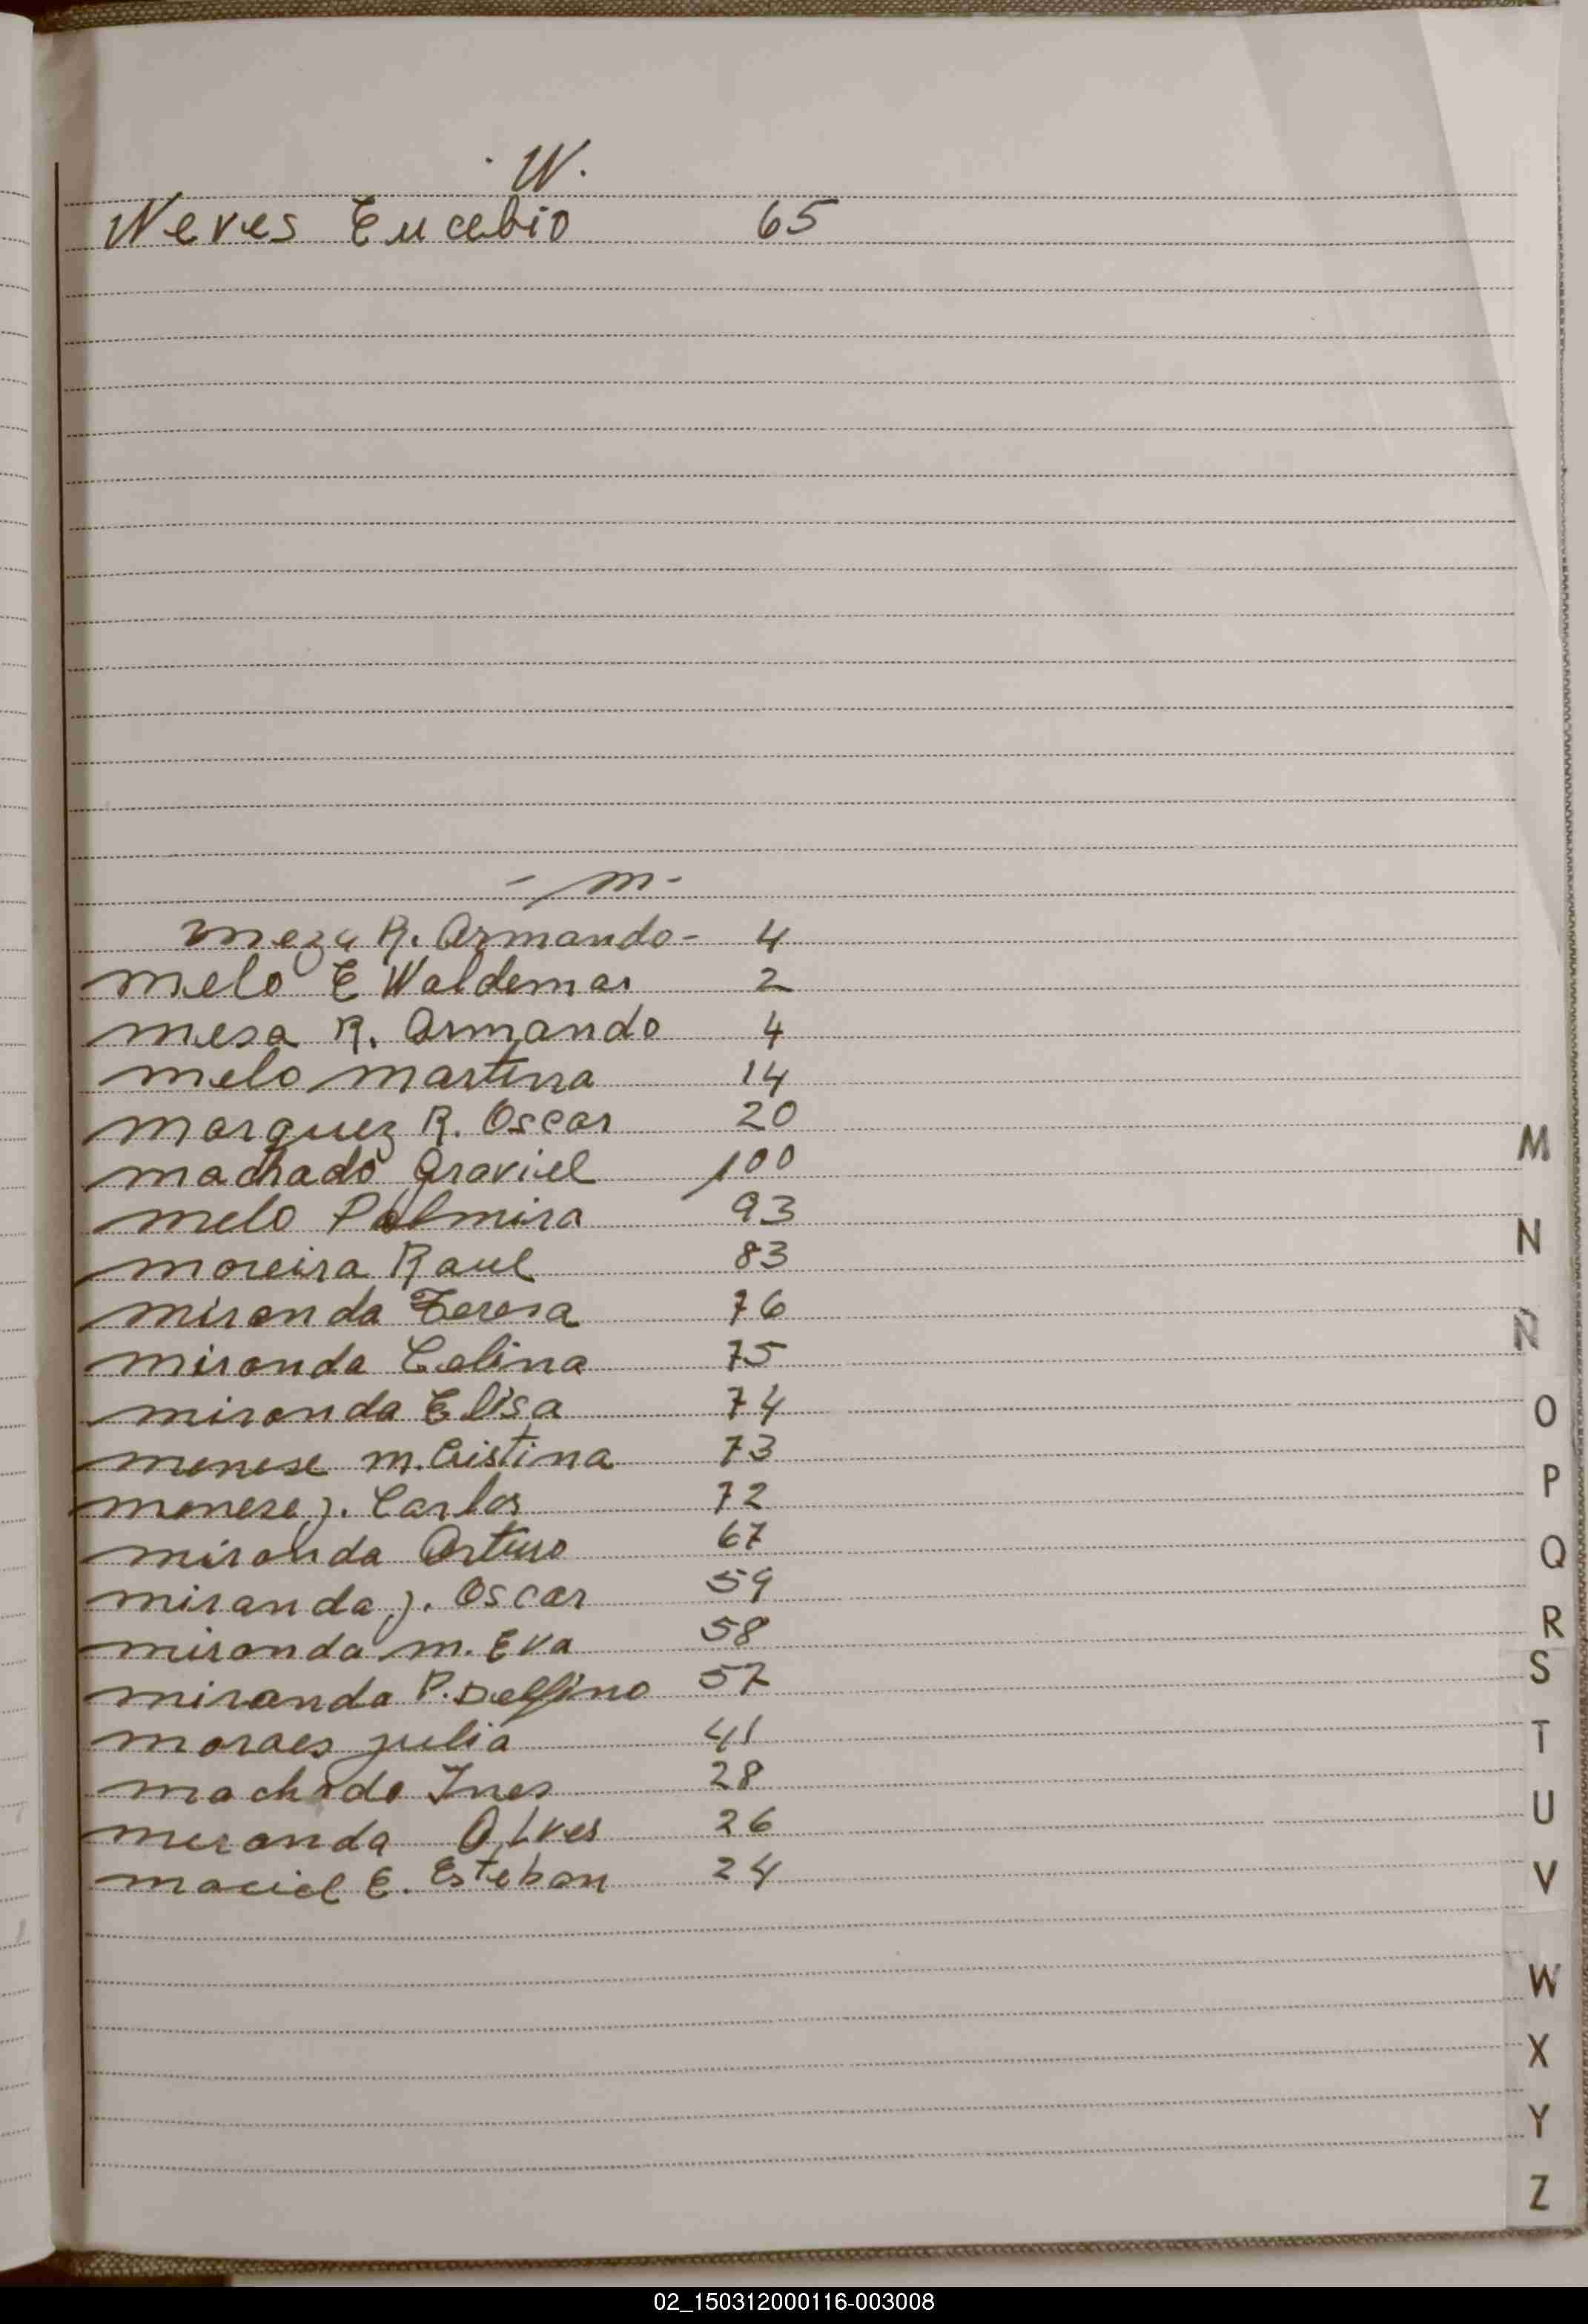 . N.
Neves Eucebio 65
- m -
meza R. Armando - 4
melo E Waldemar 2
mesa R. Armando 4
melo martina 14
marquez R. Oscar 20
machado Graviel 100
melo Palmira 93
moreira Raul 83
miranda Teresa 76
miranda Celina 75
miranda Elisa 74
menese m. Cristina 73
menese J. Carlos 72
miranda Arturo 67
miranda J. Oscar 59
miranda m. Eva 58
miranda P. Delfino 57
moraes julia 41
machado Ines 28
miranda Alves 26
maciel E. Esteban 24
M
N
Ñ
O
P
Q
R
S
T
U
V
W
X
Y
Z
02_150312000116-003008